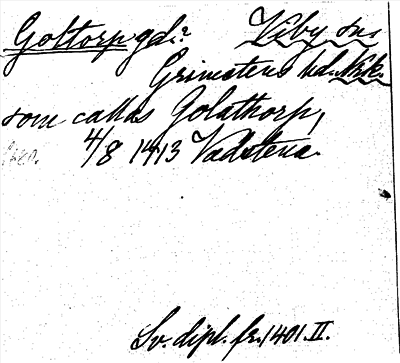 Goltorp gd.? Viby sn
Grimstens hd. Nrk.
som callas Golathorp,
4/8 1413 Vadstena.
Sv. dipl. fr. 1401. II.